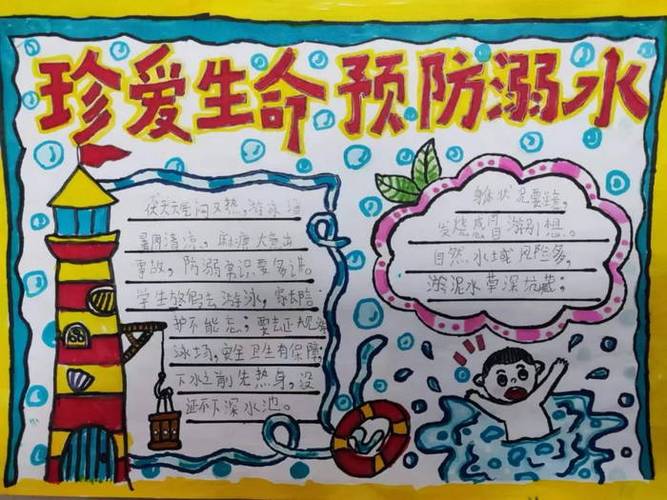 珍爱生命 预防溺水
伏天天 闷又热,游泳
暑 清凉。麻痹大意出
事故,防溺常识要多讲。
学生放假去游泳,家长陪
护不能忘;要去正规游
泳场,安全卫生有保障,
下水之前先热身,没
证不下深水池。
身体状况要
发烧感冒游别想。
自然水域风险多,
淤泥水草深坑藏;